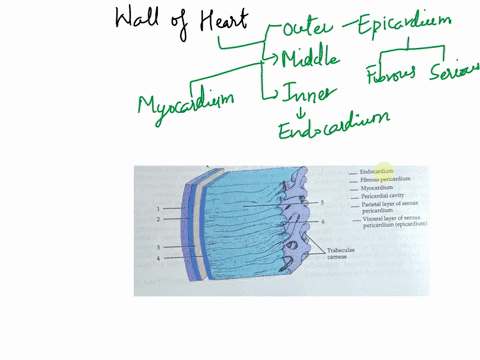 Wall of Heart
Outer - Epicardium
Middle
Fibrous Serious
Myocardium
Inner
Endocardium
Endocardium
Fibrous pericardium
Myocardium
Pericardial cavity
Parietal layer of serous
pericardium
Visceral layer of serous
pericardium (epicardium)
1
2
3
4
5
6
Trabeculae
carneae